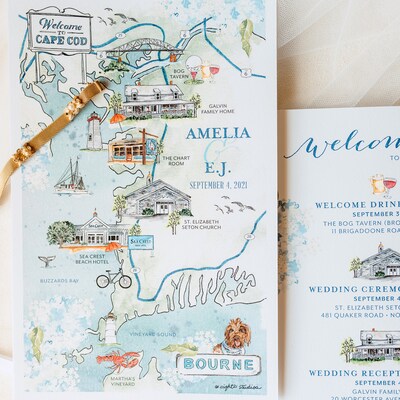 Welcome
TO
CAPE COD
BOG
TAVERN
GALVIN
FAMILY HOME
AMELIA
&
E.J.
SEPTEMBER 4, 2021
THE CHART
ROOM
ST. ELIZABETH
SETON CHURCH
SEA CREST
BEACH HOTEL
BUZZARDS BAY
VINEYARD SOUND
MARTHA'S
VINEYARD
BOURNE
welcom
TO
WELCOME DRIN
SEPTEMBER 3
THE BOG TAVERN (BRO
11 BRIGADOONE ROA
WEDDING CEREMO
SEPTEMBER 4
ST. ELIZABETH SETO
481 QUAKER ROAD - NO
WEDDING RECEPT
SEPTEMBER 4
GALVIN FAMILY
20 WORCESTER AVEN